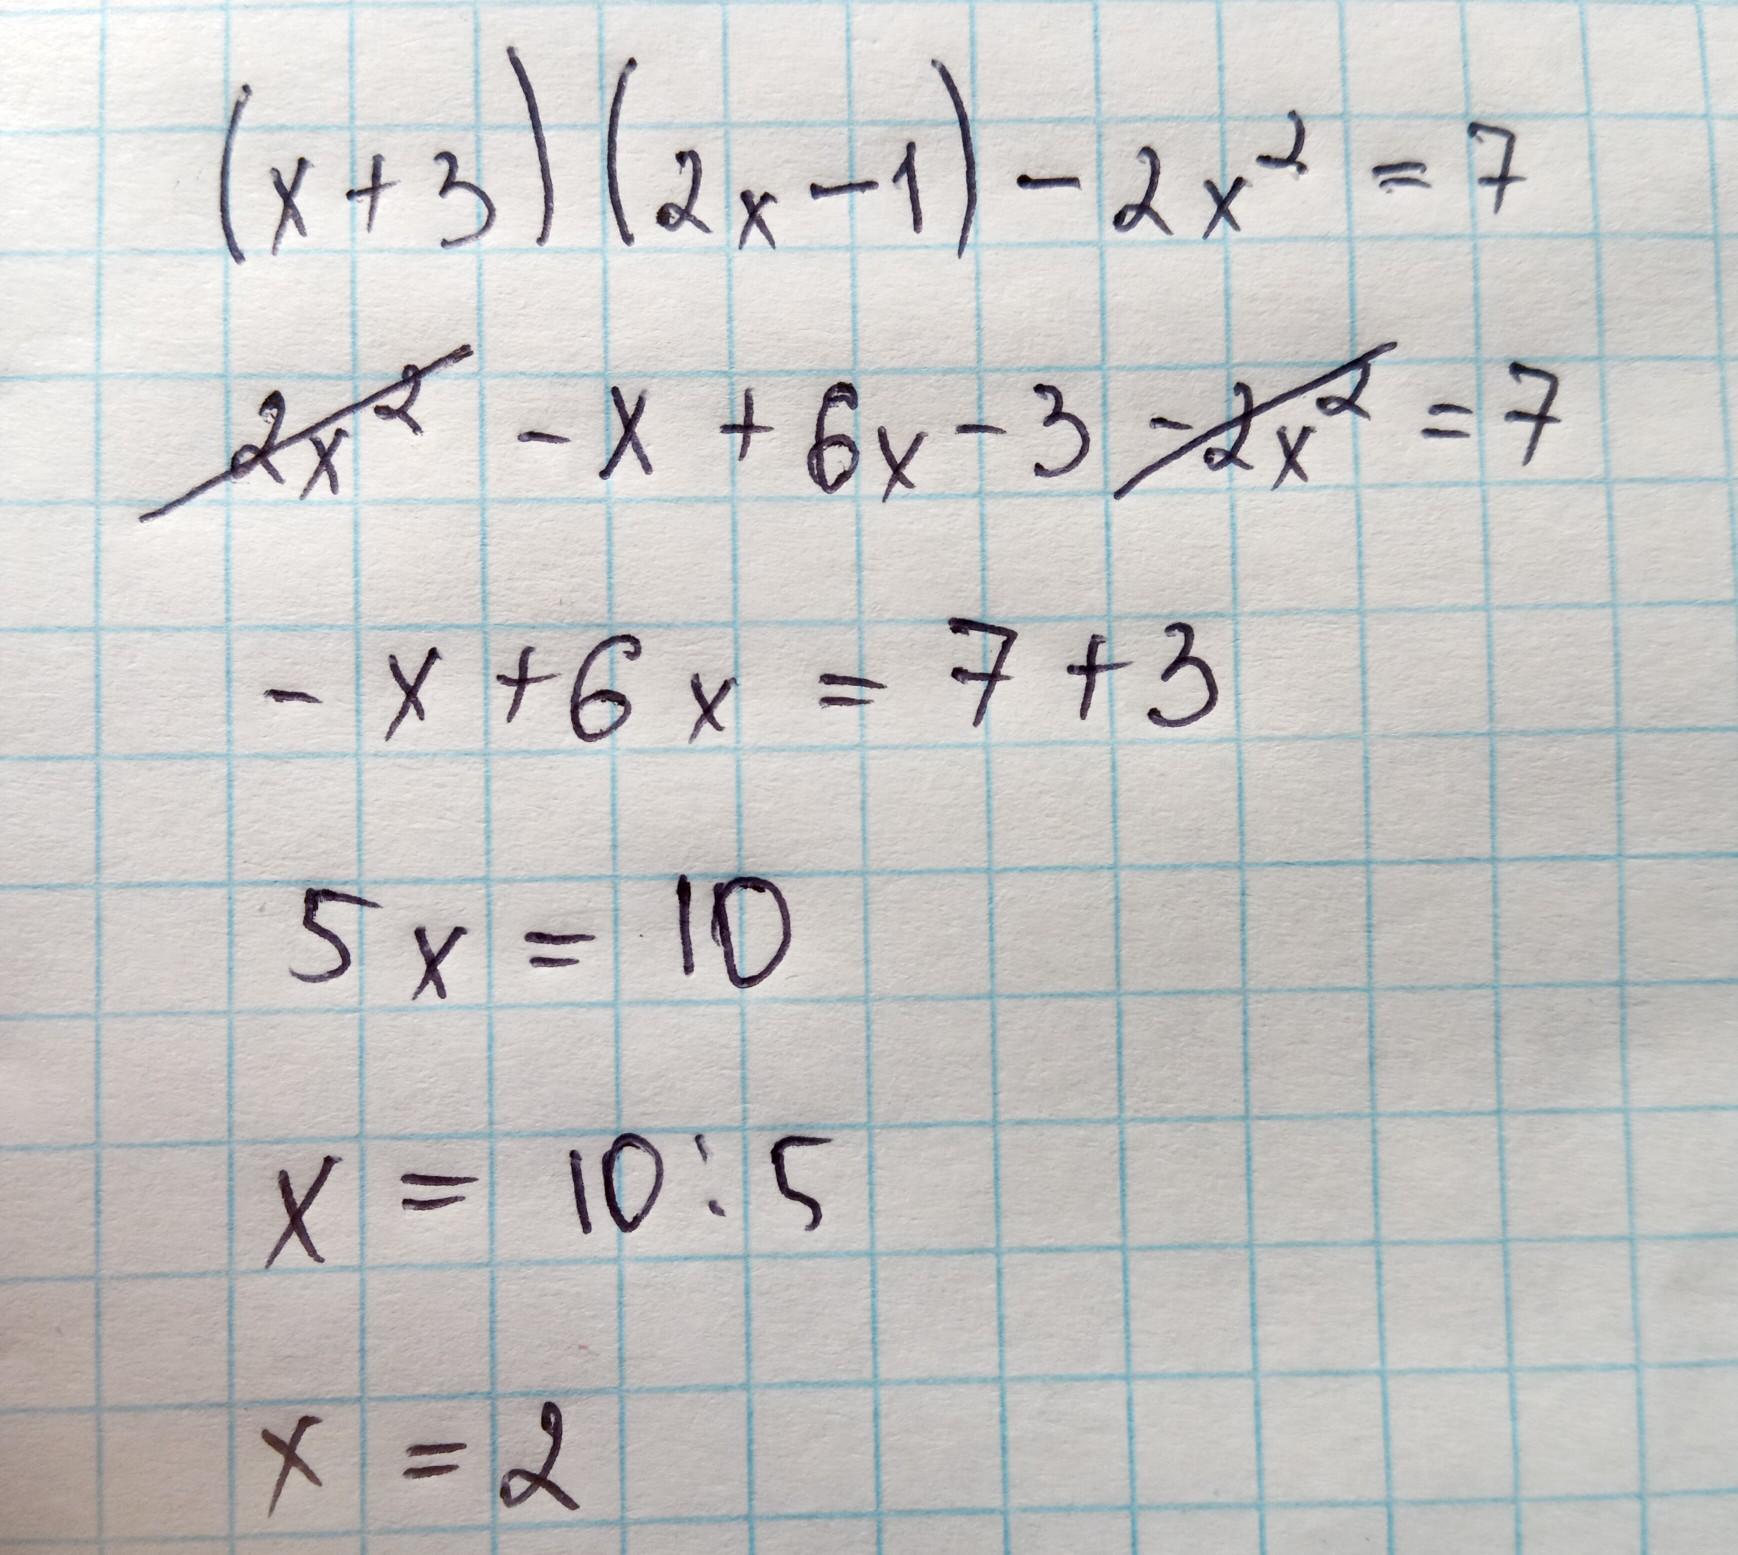 (x+3)(2x-1)-2x²=7
2x²-x+6x-3-2x²=7
-x+6x=7+3
5x=10
x=10:5
x=2